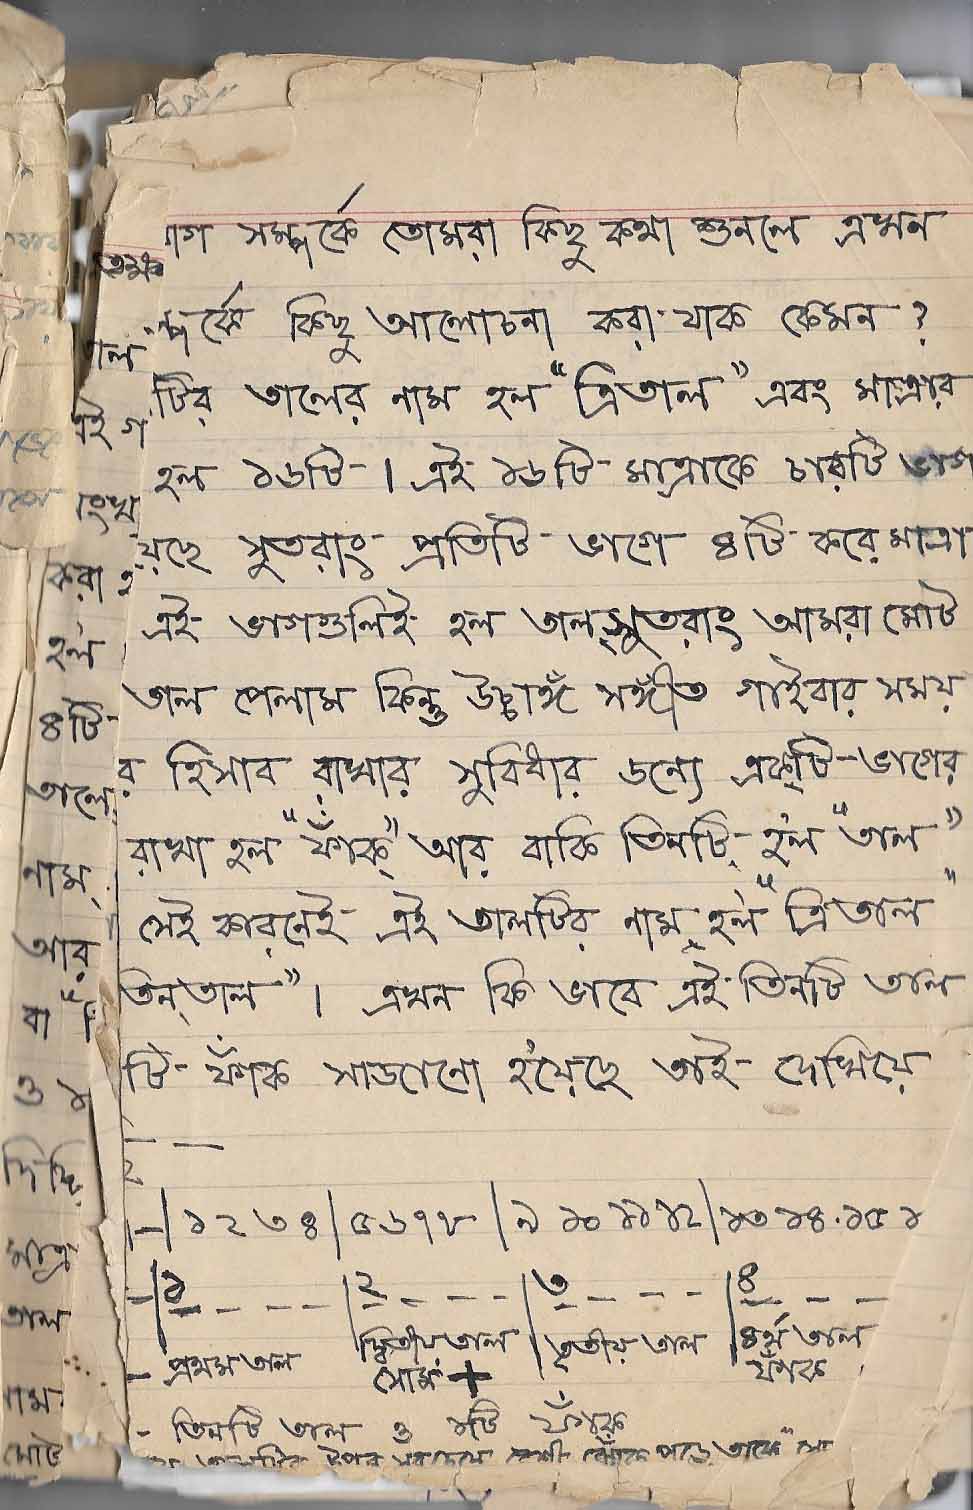 রাগ সম্পর্কে তোমরা কিছু কথা শুনলে এখন
সম্পর্কে কিছু আলোচনা করা যাক কেমন ?
টির তালের নাম হল “ত্রিতাল” এবং মাত্রার
হল ১৬টি - । এই ১৬টি মাত্রাকে চারটি ভাগ
করা হয়েছে সুতরাং প্রতিটি ভাগে ৪টি করে মাত্রা
হল এই ভাগগুলিই হল তাল সুতরাং আমরা মোট
৪টি তাল পেলাম কিন্তু উচ্চাঙ্গঁ সঙ্গীঁত গাইবার সময়
তালের হিসাব রাখার সুবিধার জন্যে একটি ভাগের
নাম রাখা হল “ফাঁক্” আর বাকি তিনটি হল “তাল”
আর সেই কারনেই এই তালটির নাম হল “ত্রিতাল”
বা “তিন্‌তাল” । এখন কি ভাবে এই তিনটি তাল
ও ১টি ফাঁক সাজানো হয়েছে তাই দেখিয়ে
দিচ্ছি —
মাত্রা - | ১ ২ ৩ ৪ | ৫ ৬ ৭ ৮ | ৯ ১০ ১১ ১২ | ১৩ ১৪ . ১৫ ১
তাল - | ১ - - - - | ২ - - - - | ৩ - - - - | ৪ - - -
নাম - প্রথম তাল | দ্বিতীয় তাল সোম + | তৃতীয় তাল | ৪র্থ তাল ফাঁক
মোট - তিনটি তাল ও ১টি ফাঁক
উপর সবচেয়ে বেশী ঝোঁক পড়ে তাকে